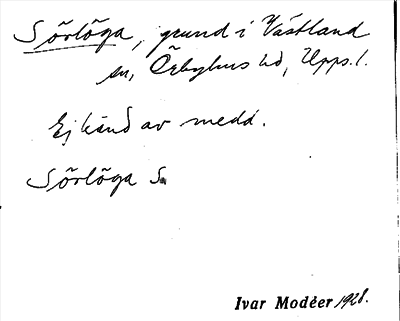 Sörlöga, grund i Västland
sn, Örbyhus hd, Upps. l.
Ej känd av medd.
Sörlöga Sn
Ivar Modéer 1928.